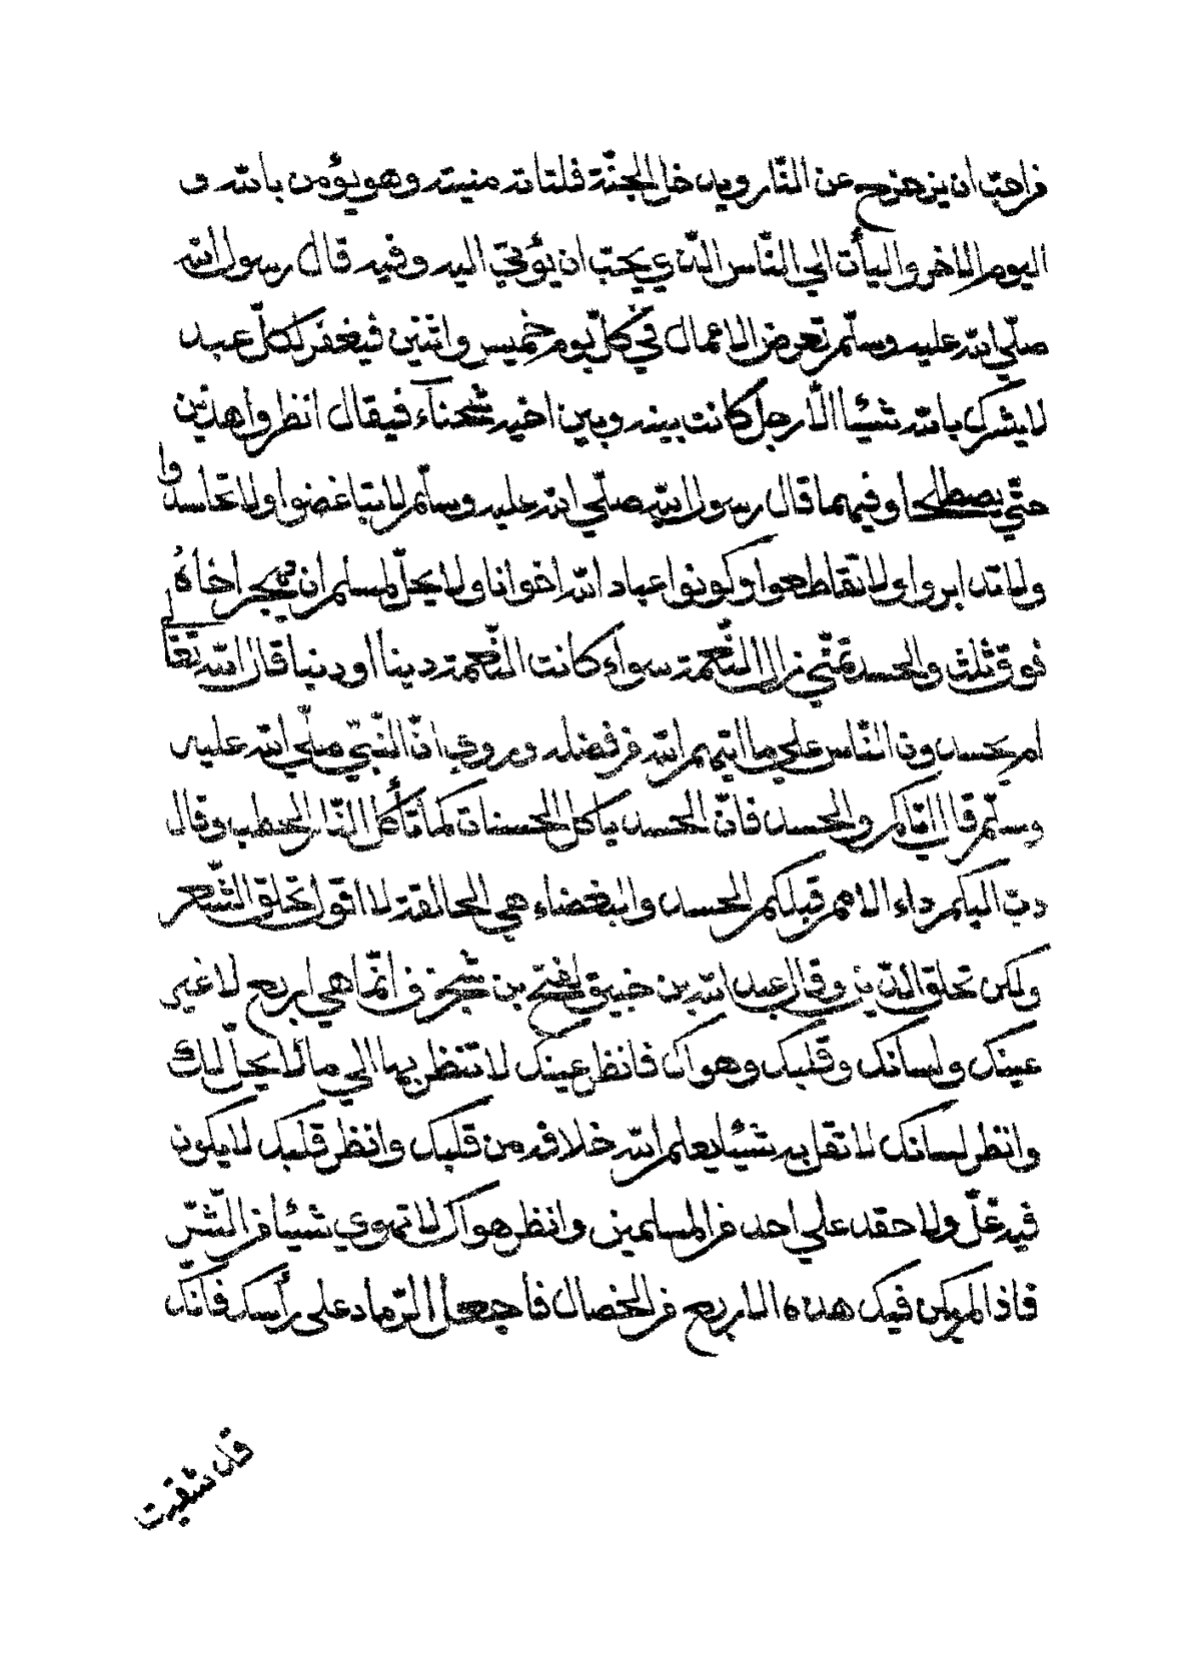 فمن احبّ ان يزحزح عن النّار ويدخل الجنّة فلتاته منيته وهو يؤمن بالله و
اليوم الاخر واليأت الي النّاس الذي يحبّ ان يؤتيَ اليه وفيه قال رسول الله
صلّي الله عليه وسلّم تعرض الاعمال في كلّ يوم خميس واثنين فيغفر لكلّ عبد
لا يشرك بالله شيئا الاّ رجل كانت بينه وبين اخيه شحنآء فيقال انظروا هذين
حتّي يصطلحا وفيهما قال رسول الله صلّي الله عليه وسلّم لا تباغضوا ولا تحاسدوا
ولا تدابروا ولا تقاطعوا وكونوا عباد الله اخوانا ولا يحلّ لمسلم ان يهجر اخاهُ
فوق ثلث والحسد تمنّي زال النّعمة سواء كانت النّعمة دينا او دنيا قال الله تعالي
ام يحسدون النّاس علي ما اتيهم الله من فضله وروي انّ النّبيّ صلّي الله عليه
وسلّم قال ايّاكم والحسد فانّ الحسد ياكل الحسنات كما تأكل النّار الحطب وقال
دبّ اليكم داء الامم قبلكم الحسد والبغضاء هي الحالقة لا اقول تحلق الشّعر
ولكن تحلق الدّين وقال عبد الله بن خبيق لفتح بن شخرف انّما هي اربع لا غير
عينك ولسانك وقلبك وهواك فانظر عينك لا تنظر بها الي ما لا يحلّ لك
وانظر لسانك لا تقل به شيئا يعلم الله خلافه من قلبك وانظر قلبك لا يكون
فيه غلّ ولا حقد علي احد من المسلمين وانظر هواك لا تهوي شيئا من الشّرّ
فاذا لم يكن فيك هذه الاربع من الخصال فاجعل الرّماد علي رأسك فانّك
قال شقيت